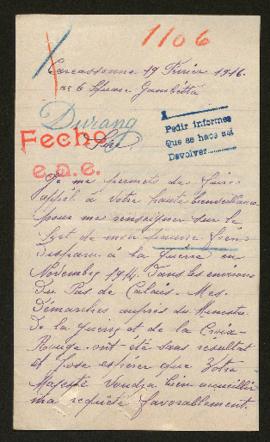 1106
Carcassonne 19 Février 1916.
6 Square Gambetta
Durang
Sire
Pedir informes
Que se hace así
Devolver
Fecho
e.n.e.
Je me permets de faire
appel à votre haute bienveillance
pour me renseigner sur le
sort de mon pauvre
disparu à la guerre en
Novembre 1914. Dans les environs
du Pas de Calais. Mes
démarches auprès du Ministre
de la Guerre et de la Croix
Rouge ont été sans résultat
et j'ose espérer que Votre
Majesté voudra bien accueillir
ma requête favorablement.